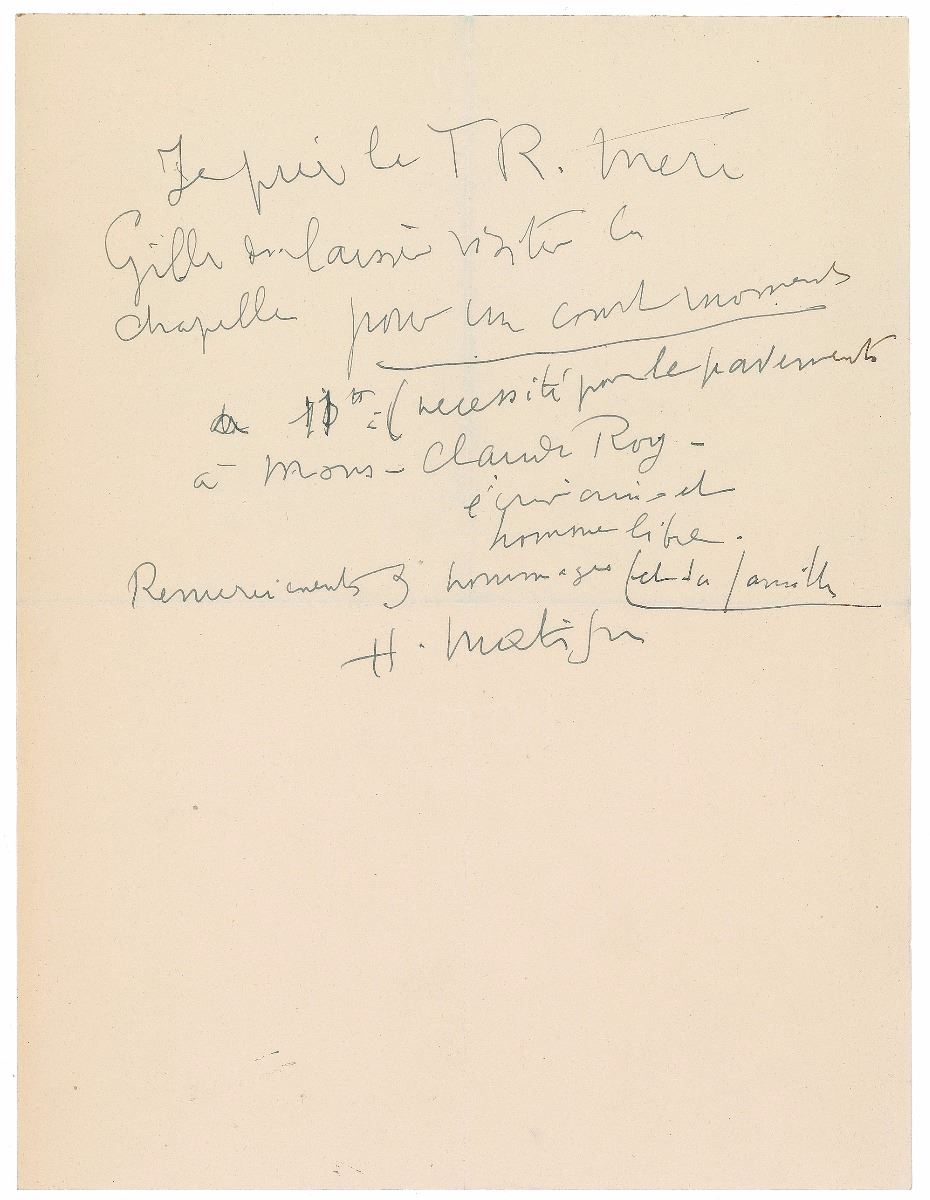 Je prie la T R. Mère
Gille de laisser visiter la
chapelle pour un court moment
(nécessité par le pavement)
à Mons- Claude Roy -
écrivain et
homme libre.
Remerciements & hommages (et sa famille
H. Matisse